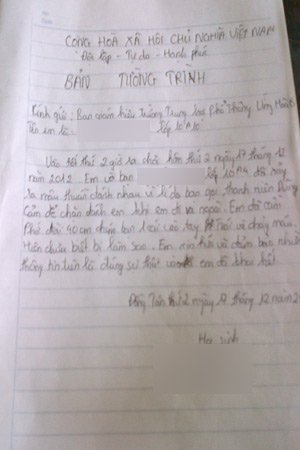 CỘNG HOÀ XÃ HỘI CHỦ NGHĨA VIỆT NAM
Độc lập - Tự do - Hạnh phúc
BẢN TƯỜNG TRÌNH
Kính gửi: Ban giám hiệu trường Trung học Phổ Thông
Tên em là: lớp 10A10
Vào tiết thứ 2 giờ ra chơi hôm thứ 2 ngày 17 tháng 12
năm 2012. Em và bạn lớp 10A4 đã xảy
ra mâu thuẫn đánh nhau vì lí do bạn gọi thanh niên
để chặn đánh em khi em đi ra ngoài. Em đã cầm
dài 40cm chém bạn vào tay và chảy máu.
Hiện chưa biết bị làm sao. Em xin
thông tin trên là đúng sự thật em đã khai hết
thứ 2 ngày 17 tháng 12 năm 2
Học sinh